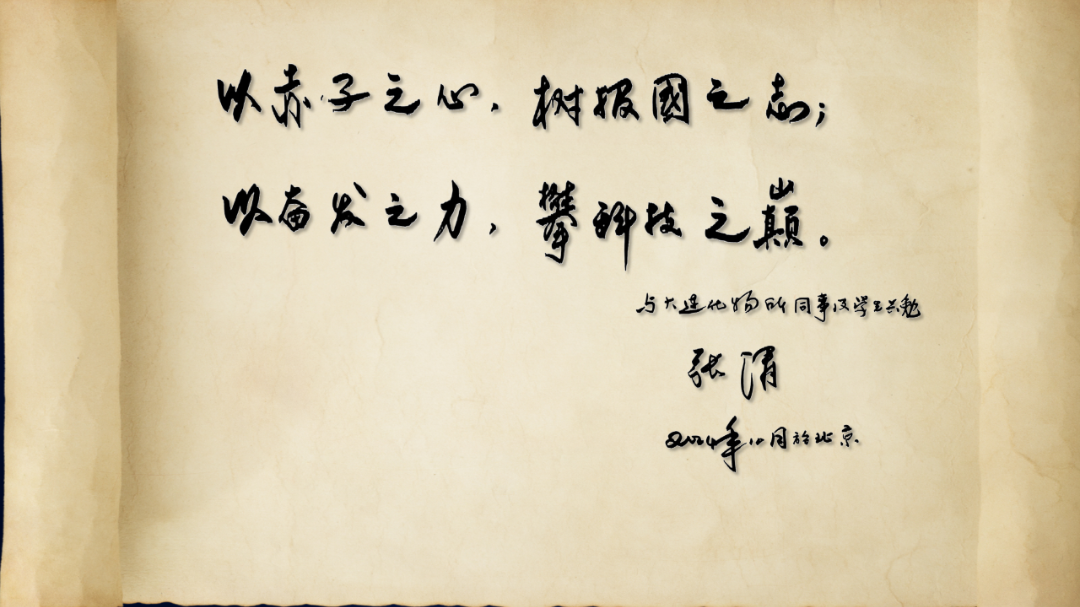 以赤子之心，树报國之志；
以奋发之力，攀科技之巅。
与大连化物所同事及学生共勉
张涛
2024年10月於北京